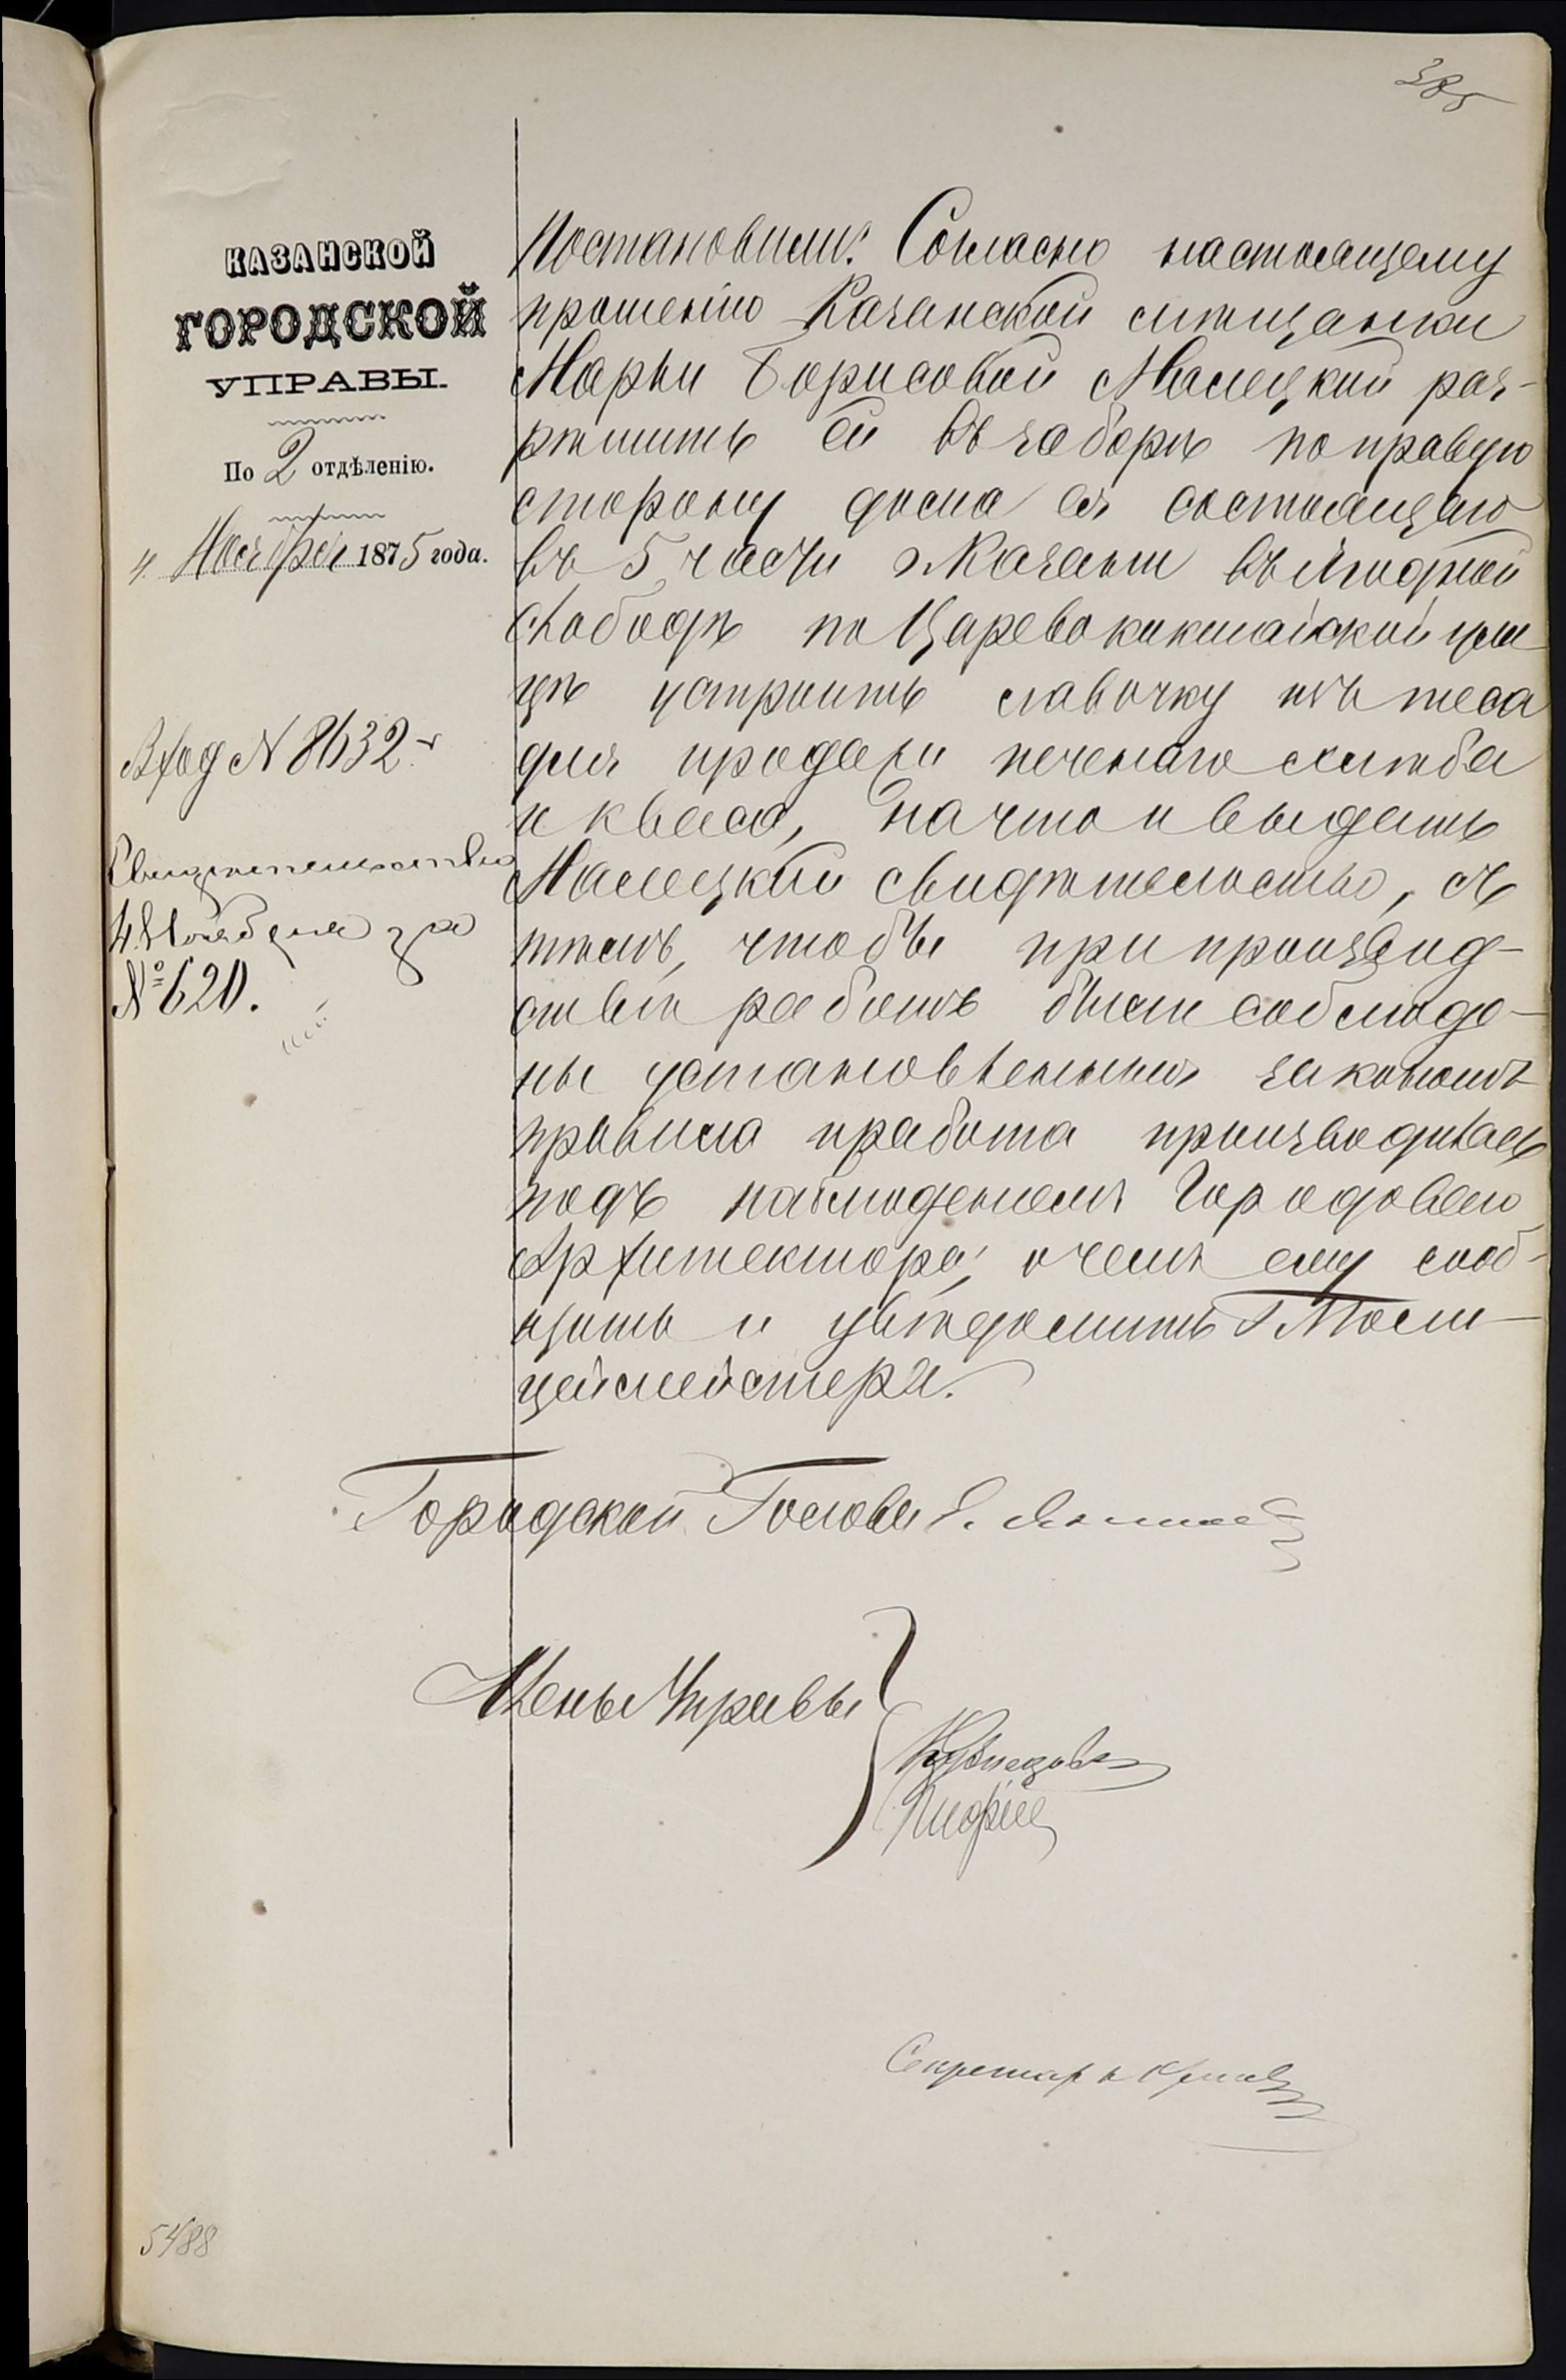 385
КАЗАНСКОЙ
ГОРОДСКОЙ
УПРАВЫ.
По 2 отдѣленію.
4. Ноября 1875 года.
Вход N 8632
Свидѣтельство
4 Ноября за
№ 620.
Постановили: Согласно настоящему
прошенію Казанской мѣщанки
Марьи Борисовой Малецкой раз-
рѣшить ей въ заборѣ по правую
сторону дома ея состоящаго
въ 5 части г. Казани въ Ягодной
слободѣ по Царевококшайской ули
цѣ устроить лавочку изъ теса
для продажи печенаго хлѣба
и кваса, на что и выдать
Малецкой свидѣтельство, съ
тѣмъ, чтобы при производ-
ствѣ работъ были соблюде-
ны установленныя закономъ
правила и работа производилась
подъ наблюденіемъ Городоваго
Архитектора, о чемъ ему сооб-
щить и увѣдомить г. Поли-
цеймейстера.
Городской Голова
Члены Управы
Кузнецовъ
Секретарь
5488